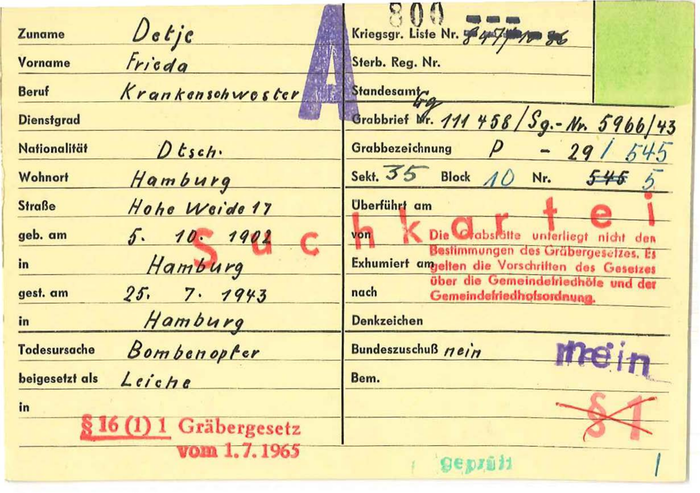 Zuname Detje
Vorname Frieda
Beruf Krankenschwester
Dienstgrad
Nationalität Dtsch.
Wohnort Hamburg
Straße Hohe Weide 17
geb. am 5. 10. 1902
in Hamburg
gest. am 25. 7. 1943
in Hamburg
Todesursache Bombenopfer
beigesetzt als Leiche
in
§ 16 (1) 1 Gräbergesetz
vom 1.7.1965
A
800
Kriegsgr. Liste Nr.
Sterb. Reg. Nr.
Standesamt
Grabbrief Nr. 111 458 / Sg.- Nr. 5966/43
Grabbezeichnung P - 29 / 545
Sekt. 35 Block 10 Nr. 545 5
Überführt am
von
Suchkartei
Die Grabstätte unterliegt nicht den
Bestimmungen des Gräbergesetzes. Es
gelten die Vorschriften des Gesetzes
über die Gemeindefriedhöfe und der
Gemeindefriedhofsordnung.
Exhumiert am
nach
Denkzeichen
Bundeszuschuß nein
nein
Bem.
§ 1
geprüft
1